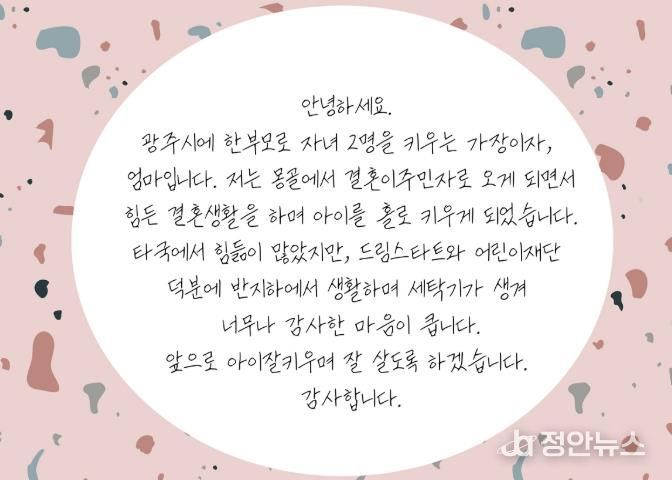 안녕하세요.
광주시에 한부모로 자녀 2명을 키우는 가장이자,
엄마입니다. 저는 몽골에서 결혼이주민자로 오게 되면서
힘든 결혼생활을 하며 아이를 홀로 키우게 되었습니다.
타국에서 힘듦이 많았지만, 드림스타트와 어린이재단
덕분에 반지하에서 생활하며 세탁기가 생겨
너무나 감사한 마음이 큽니다.
앞으로 아이잘키우며 잘 살도록 하겠습니다.
감사합니다.
정안뉴스